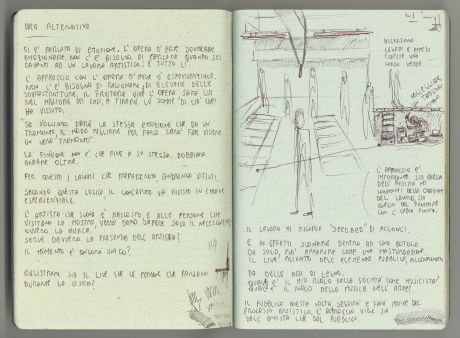 IDEA ALTERNATIVA
SI E' PARLATO DI EMOZIONE. L'OPERA D'ARTE DOVREBBE
EMOZIONARE. NON C'E' BISOGNO DI PARLARNE QUANDO SEI
DAVANTI AD UN LAVORO ARTISTICO. E' TUTTO LÌ.
L'APPROCCIO CON L'OPERA D'ARTE È ESPERIENZIALE.
NON C'È BISOGNO DI RAGIONARE, DI ELEVARE DELLE
SOVRASTRUTTURE. IL FRUITORE VIVE L'OPERA SARÀ LUI
NEL MIGLIORE DEI CASI, A TIRARNE LE SOMME DI CIÒ CHE
HA VISSUTO.
"SE VOGLIAMO DARE LA STESSA EMOZIONE CHE DA UN
TRAMONTO, IL MODO MIGLIORE PER FARLO SARÀ FAR VIVERE
UN VERO TRAMONTO"
LA FUNZIONE NON È CHE FINE A SE STESSA. DOBBIAMO
ANDARE OLTRE.
PER QUESTO I LAVORI CHE PREFERISCO ANDREBBERO VISSUTI.
SECONDO QUESTA LOGICA IL CONCERTO VA VISSUTO IN CHIAVE
ESPERIENZIALE.
L'ARTISTA CHE SUONA È NASCOSTO E ALLE PERSONE CHE
VISITANO LA MOSTRA VIENE DATO SAPERE SOLO IL NECESSARIO
OVVERO LA MUSICA.
SERVE DAVVERO LA PRESENZA DELL'ARTISTA?
IL MOMENTO È ANCORA UNICO?
REGISTRARE SIA IL LIVE CHE LE PERSONE CHE PARLANO
DURANTE LA VISITA?
MICROFONO
LEGATO E APPESO
TRAMITE UNA
CORDA VERDE
L'APPROCCIO È
IMPORTANTE. SIA QUELLA
DELL'ARTISTA NEI
CONFRONTI DELLA CREAZIONE
DEL LAVORO, SIA
QUELLA DEL FRUITORE
CON L'OPERA FINITA.
IL LAVORO MI RICORDA "SEEDBED" DI ACCONCI.
E IN EFFETTI SUONARE DENTRO AD UNA BOTOLA
DA SOLO, PUÒ APPARIRE COME UNA MASTURBAZIONE.
IL LIVE PRIVATO DELL'ELEMENTO PUBBLICO,
DA DELLE ASSI DI LEGNO.
QUAL È IL MIO RUOLO NELLA SOCIETÀ COME MUSICISTA?
QUAL È IL RUOLO DELLA MUSICA NELL'ARTE?
IL PUBBLICO QUESTA VOLTA, E FARÀ PARTE DEL
PROCESSO ARTISTICO. L'APPROCCIO VIVE SIA
DELL'ARTISTA CHE DAL PUBBLICO.